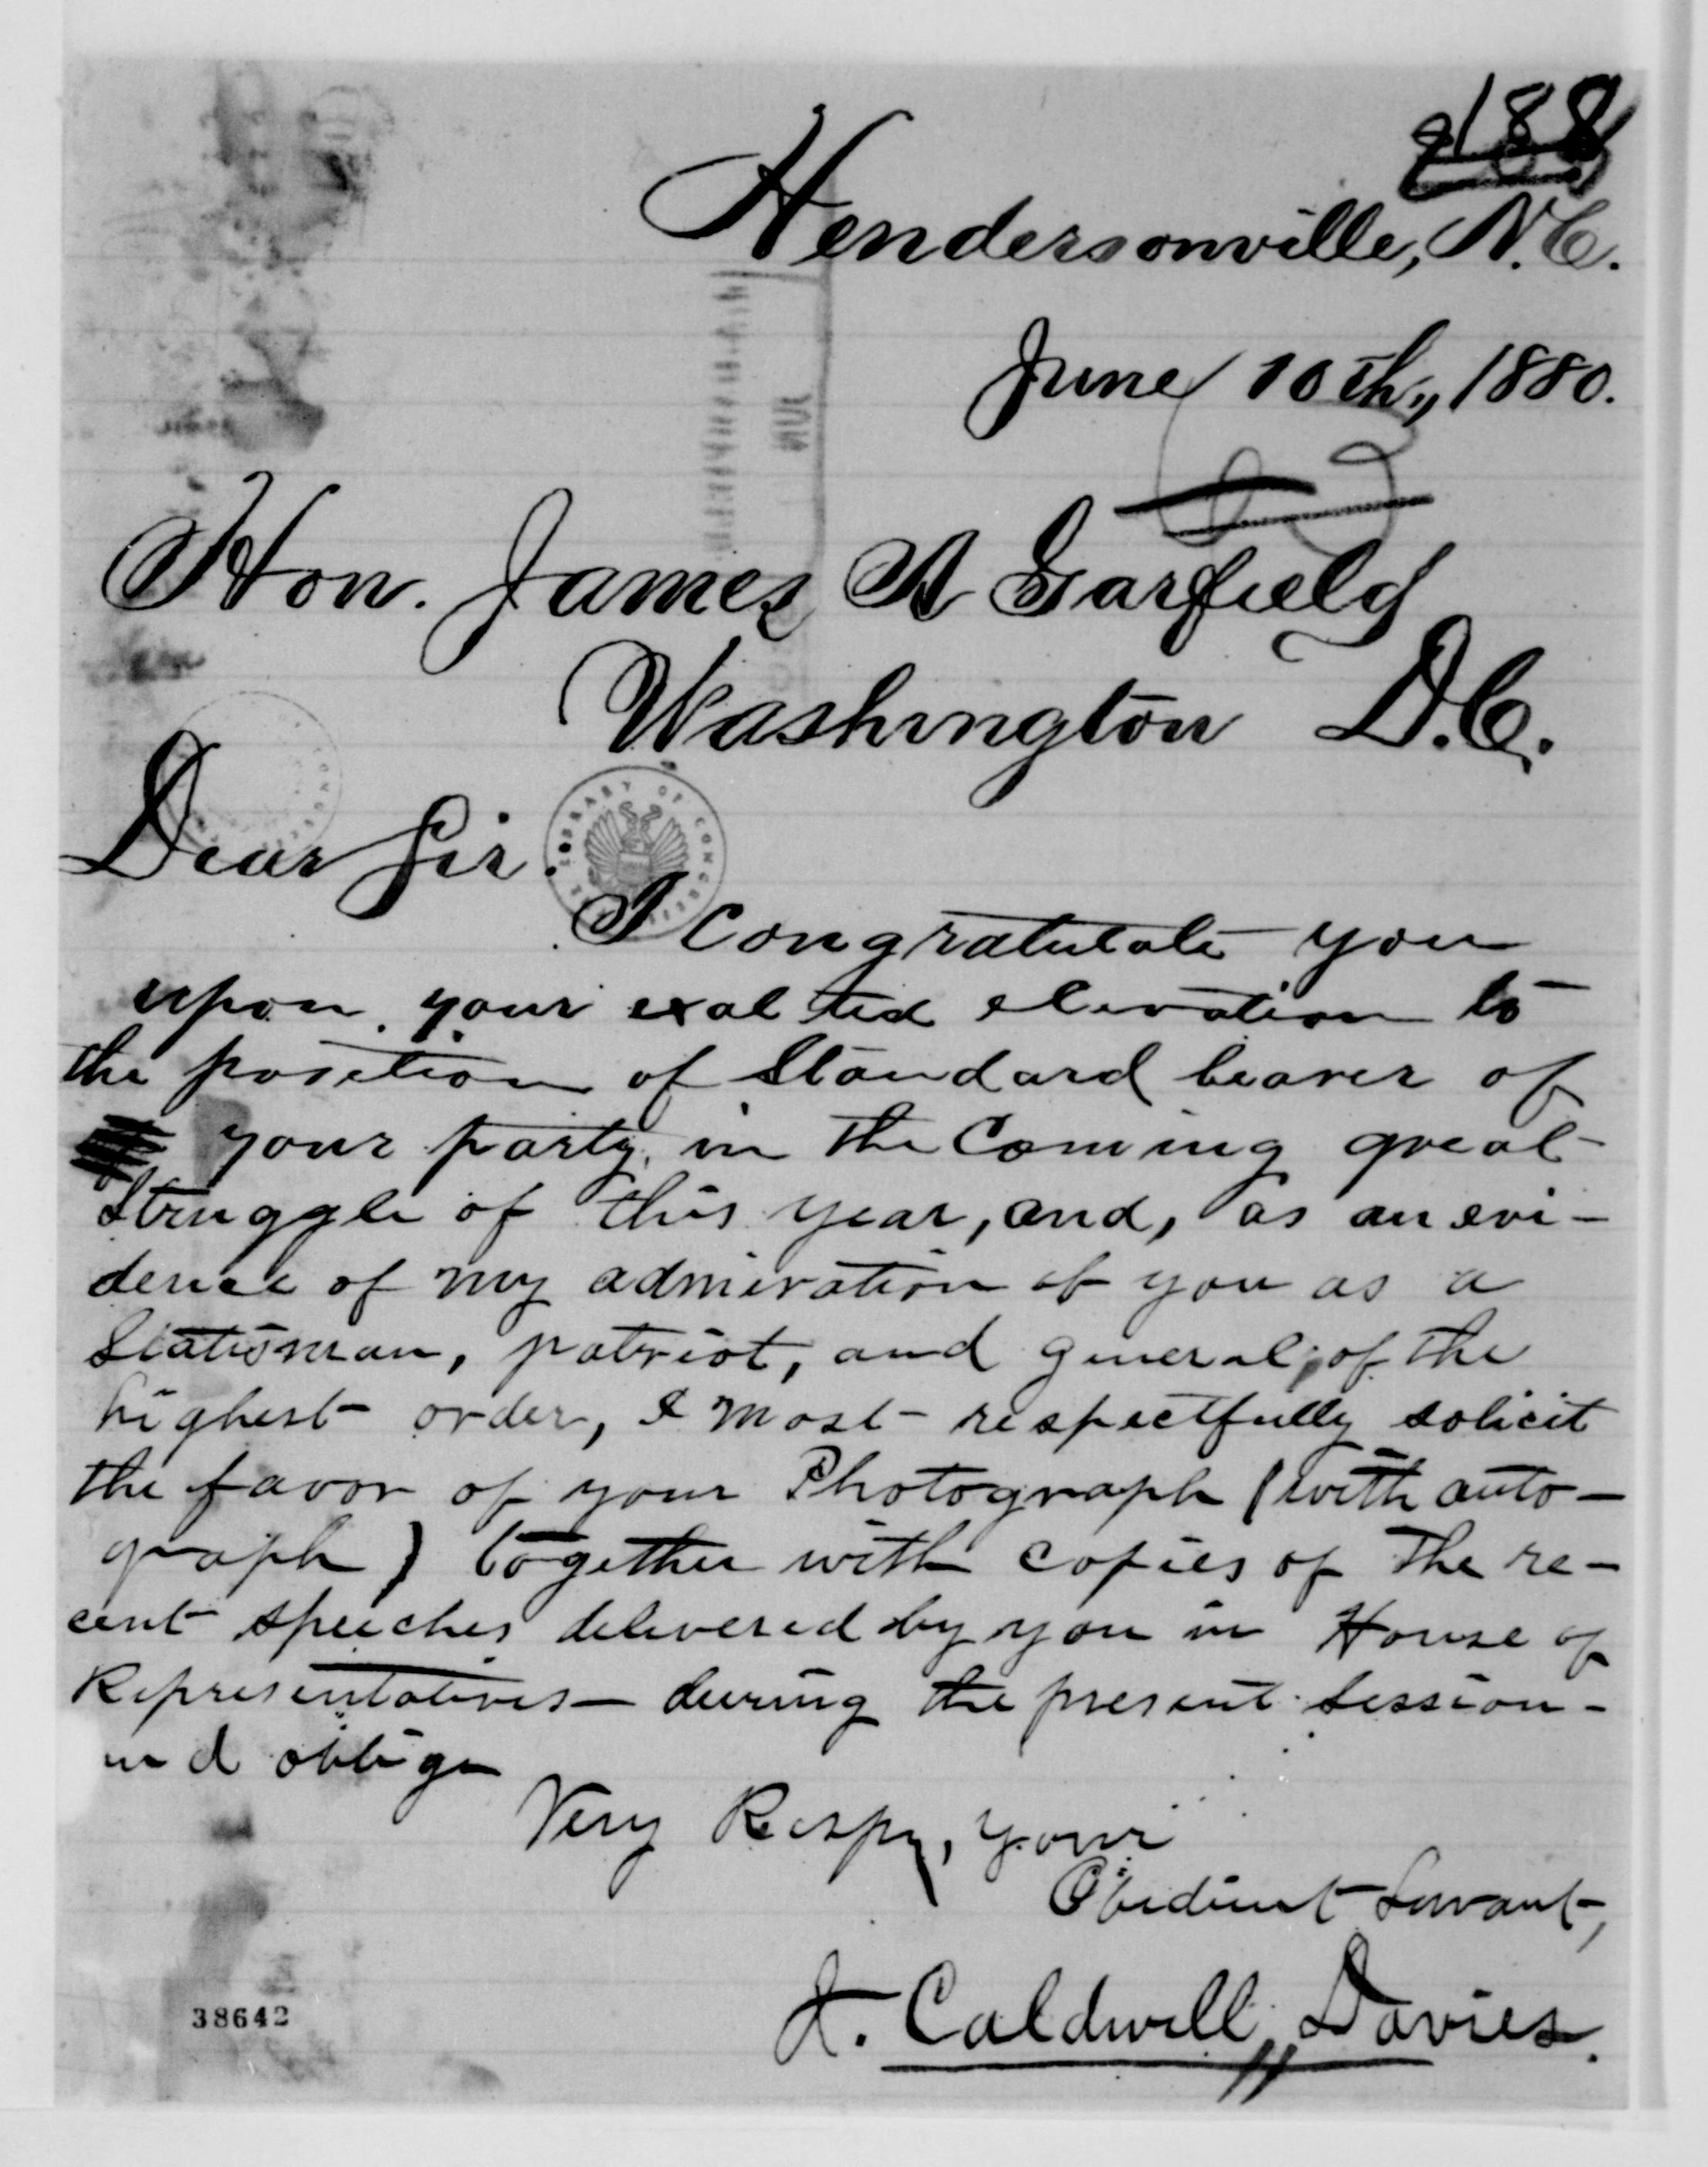 188
Hendersonville, N.C.
June 10th, 1880.
Hon. James A Garfield
Washington D.C.
Dear Sir.
LIBRARY OF CONGRESS
I Congratulate you
upon your exalted elevation to
the position of Standard bearer of
your party, in the Coming great
struggle of this year, and, as an evi-
dence of my admiration of you as a
Statesman, patriot, and general, of the
highest order, I most respectfully solicit
the favor of your Photograph (with auto-
graph) together with copies of the re-
cent speeches delivered by you in House of
Representatives - during the present session -
and oblige
Very Respy, your
Obedient Servant,
Caldwell Davies.
38642